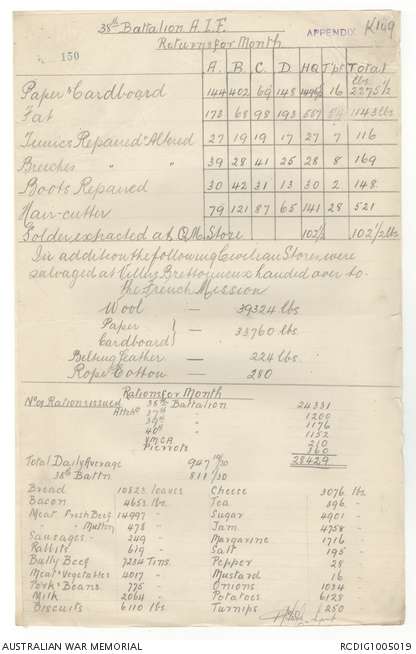 38th Battalion A.I.F.
APPENDIX K109
150
Returns for Month
A. B. C. D HQ T'pt Total
lbs
Paper & Cardboard 144 402 69 148 16 2275½
Fat 173 68 98 193 557 1143 lbs
Tunics Repaired & Altered 27 19 19 17 27 7 116
Breeches " " 39 28 41 25 28 8 169
Boots Repaired 30 42 31 13 30 2 148
Hair-cutter 79 121 87 65 141 28 521
Solder extracted at Q.M. Store 102½ 102½ lbs
In addition the following Civilian Stores were
salvaged at Villers Brettonneux & handed over to
the French Mission
Wool — 39324 lbs
Paper }
Cardboard } — 33760 lbs
Belting Leather — 224 lbs
Rope Cotton — 280
Rations for Month
No of Rations issued 38th Battalion 24331
Attchd 37th " 1200
39th " 1176
40th " 1152
YMCA 210
Pierrots 360
28429
Total Daily Average 947 19/30
38th Battn 811 1/30
Bread 10823 loaves Cheese 3076 lbs
Bacon 4653 lbs. Tea 396 "
Meat Fresh Beef 14997 " Sugar 4901 "
" " Mutton 478 " Jam 4758 "
Sausages 249 " Margarine 1716 "
Rabbits 619 " Salt 195 "
Bully Beef 7234 Tins. Pepper 28 "
Meat & Vegetables 4017 " Mustard 16 "
Pork & Beans 775 " Onions 1034 "
Milk 2064 " Potatoes 6128 "
Biscuits 6110 lbs Turnips 250
AUSTRALIAN WAR MEMORIAL
RCDIG1005019